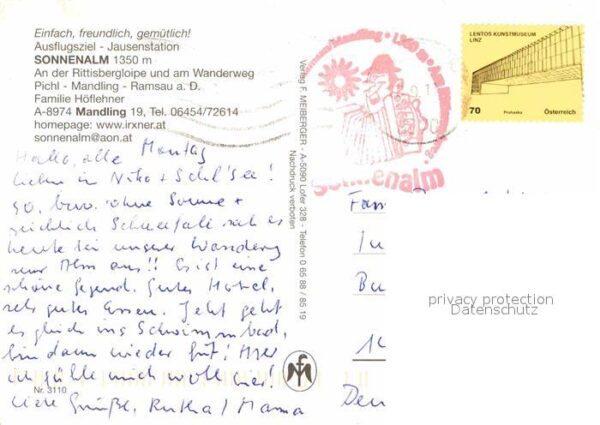 Einfach, freundlich, gemütlich!
Ausflugsziel - Jausenstation
SONNENALM 1350 m
An der Rittisbergloipe und am Wanderweg
Pichl - Mandling - Ramsau a. D.
Familie Höflehner
A-8974 Mandling 19, Tel. 06454/72614
homepage: www.irxner.at
sonnenalm@aon.at
Montag
Hallo, alle
lieben in
so, bzw. ohne Sonne +
reichlich Schneefall sah es
heute bei unserer Wanderung
zur Alm aus!! Es ist eine
schöne Gegend. Gutes Hotel,
sehr gutes Essen. Jetzt geht
es gleich ins Schwimmbad,
bin dann wieder fit! Aber
ich fühle mich wohl hier!
Liebe Grüße, Mama
Nr. 3110
Verlag F. MEIBERGER - A-5090 Lofer 328 - Telefon 0 65 88 / 85 19
Nachdruck verboten
Mandling · 1350 m · Am
Sonnenalm
LENTOS KUNSTMUSEUM
LINZ
70
Prohaska
Österreich
Fam
In
Bu
privacy protection
Datenschutz
1
Den